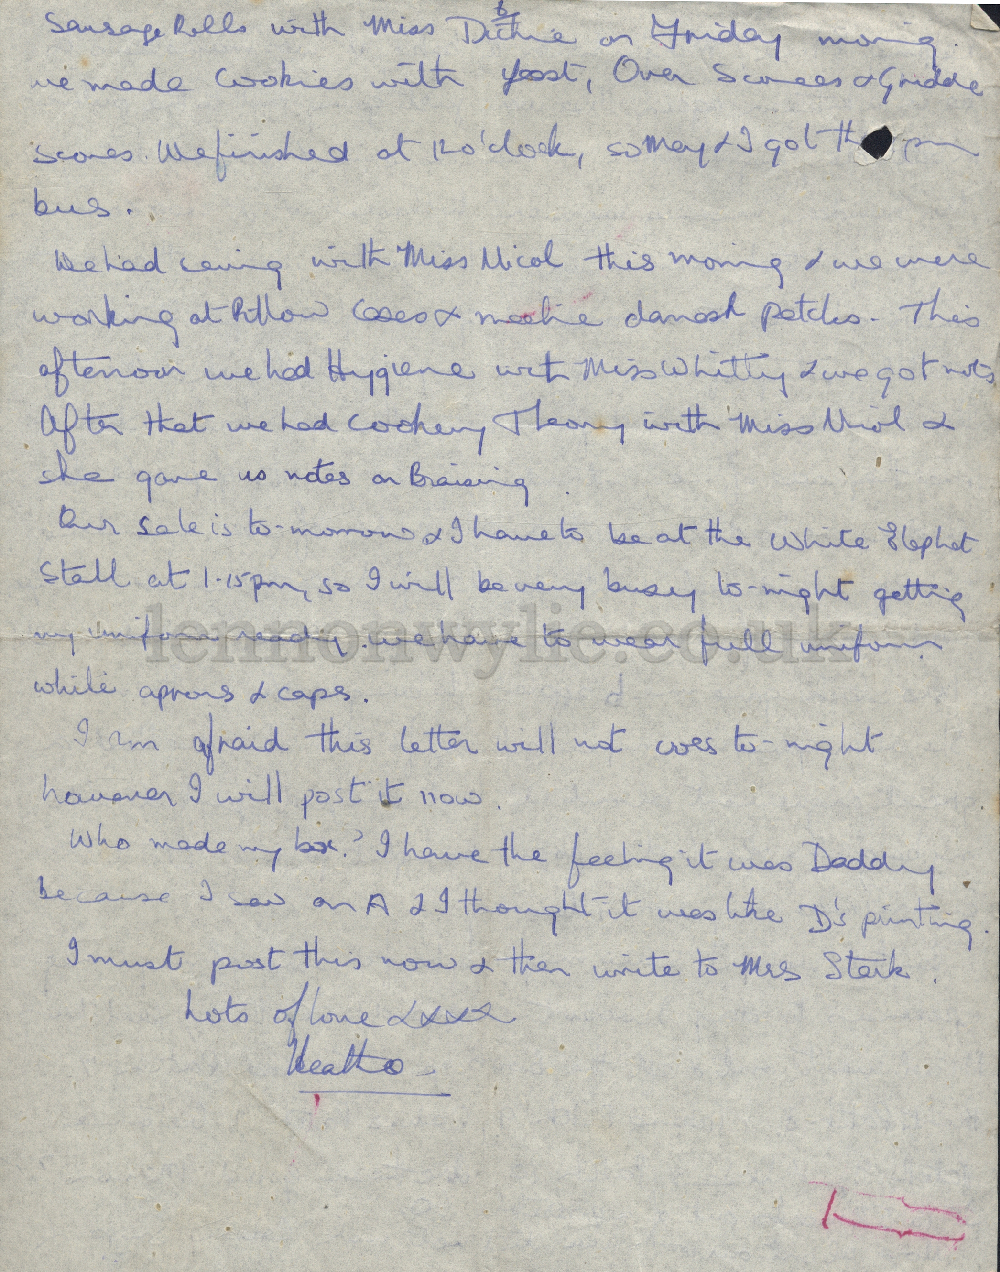 6
Sausage Rolls with Miss Duthie on Friday moring.
we made Cookies with yeast, Oven Scones & Gridde
scones. We finished at 12 o'clock, so May & I got th pm
bus.
We had swing with Miss Nicol this morning & we were
working at Pillow Cases & machine damask patches. This
afternoon we had Hygiene with Miss Whitty & we got notes
After that we had Cookery Theory with Miss Nicol &
she gave us notes on Braising.
Our sale is to-morrow & I have to be at the White Elephat
Stall at 1.15pm, so I will be very busy to-night getting
my uniform ready. we have to wear full uniform
white aprons & caps.
lennonwylie.co.uk
I am afraid this letter will not to-night
however I will post it now.
Who made my box? I have the feeling it was Daddy
because I saw an A & I thought it was like D's printing.
I must post this now & then write to Mrs Stark.
Lots of love & xxxx
Heather